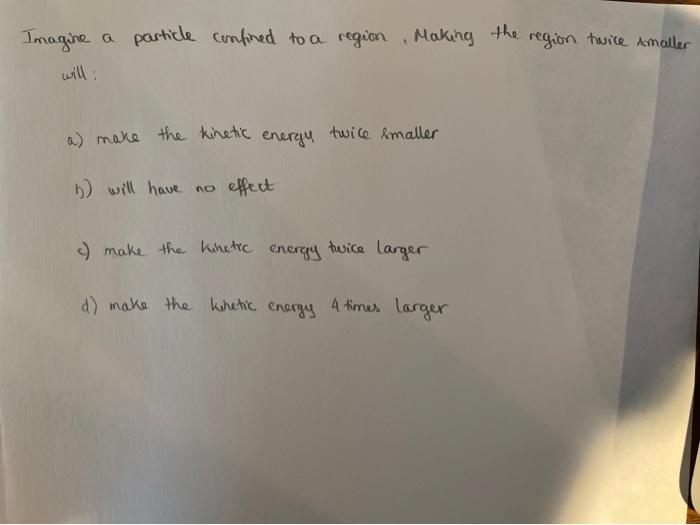 Imagine a particle confined to a region, Making the region twice smaller
will:
a) make the kinetic energy twice smaller
b) will have no effect
c) make the kinetic energy twice larger
d) make the kinetic energy 4 times larger